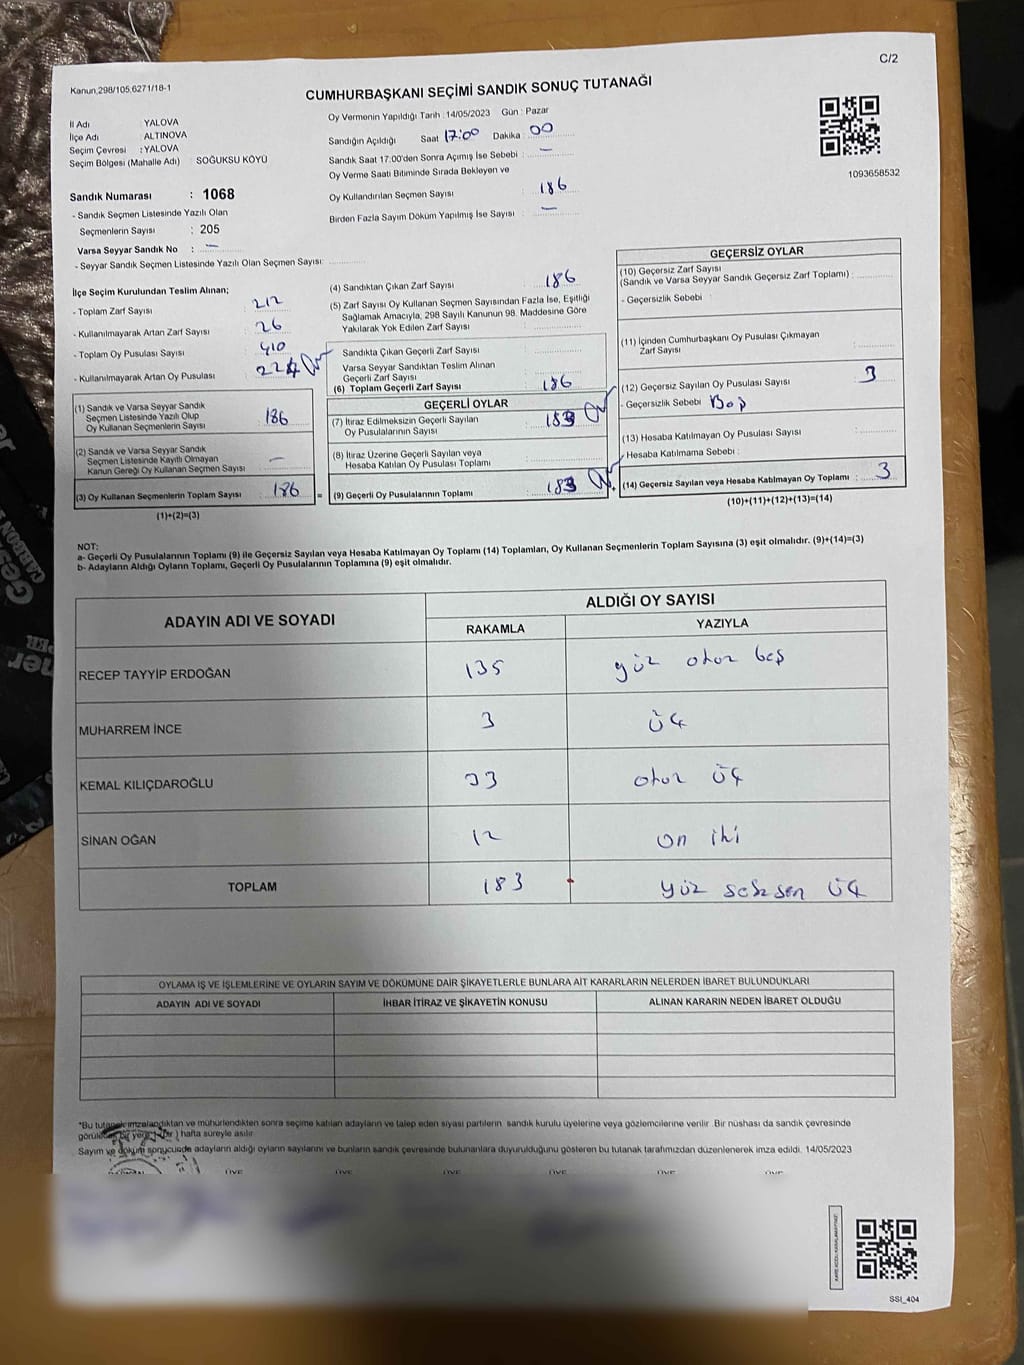 C/2
Kanun,298/105,6271/18-1
CUMHURBAŞKANI SEÇİMİ SANDIK SONUÇ TUTANAĞI
İl Adı YALOVA
İlçe Adı ALTINOVA
Seçim Çevresi : YALOVA
Seçim Bölgesi (Mahalle Adı) : SOĞUKSU KÖYÜ
Sandık Numarası : 1068
- Sandık Seçmen Listesinde Yazılı Olan
Seçmenlerin Sayısı : 205
Varsa Seyyar Sandık No : —
- Seyyar Sandık Seçmen Listesinde Yazılı Olan Seçmen Sayısı:
Oy Vermenin Yapıldığı Tarih : 14/05/2023 Gün : Pazar
Sandığın Açıldığı Saat 17:00 Dakika 00
Sandık Saat 17:00'den Sonra Açımış İse Sebebi : —
Oy Verme Saati Bitiminde Sırada Bekleyen ve
Oy Kullandırılan Seçmen Sayısı : 186
Birden Fazla Sayım Döküm Yapılmış İse Sayısı : —
1093658532
İlçe Seçim Kurulundan Teslim Alınan;
- Toplam Zarf Sayısı : 212
- Kullanılmayarak Artan Zarf Sayısı : 26
- Toplam Oy Pusulası Sayısı : 410
- Kullanılmayarak Artan Oy Pusulası : 224
(1) Sandık ve Varsa Seyyar Sandık
Seçmen Listesinde Yazılı Olup
Oy Kullanan Seçmenlerin Sayısı : 186
(2) Sandık ve Varsa Seyyar Sandık
Seçmen Listesinde Kayıtlı Olmayan
Kanun Gereği Oy Kullanan Seçmen Sayısı : —
(3) Oy Kullanan Seçmenlerin Toplam Sayısı : 186 =
(1)+(2)=(3)
(4) Sandıktan Çıkan Zarf Sayısı : 186
(5) Zarf Sayısı Oy Kullanan Seçmen Sayısından Fazla İse, Eşitliği
Sağlamak Amacıyla, 298 Sayılı Kanunun 98. Maddesine Göre
Yakılarak Yok Edilen Zarf Sayısı
Sandıkta Çıkan Geçerli Zarf Sayısı
Varsa Seyyar Sandıktan Teslim Alınan
Geçerli Zarf Sayısı
(6) Toplam Geçerli Zarf Sayısı : 186
GEÇERLİ OYLAR
(7) İtiraz Edilmeksizin Geçerli Sayılan
Oy Pusulalarının Sayısı : 183
(8) İtiraz Üzerine Geçerli Sayılan veya
Hesaba Katılan Oy Pusulası Toplamı
(9) Geçerli Oy Pusulalarının Toplamı : 183
GEÇERSİZ OYLAR
(10) Geçersiz Zarf Sayısı
(Sandık ve Varsa Seyyar Sandık Geçersiz Zarf Toplamı) :
- Geçersizlik Sebebi :
(11) İçinden Cumhurbaşkanı Oy Pusulası Çıkmayan
Zarf Sayısı
(12) Geçersiz Sayılan Oy Pusulası Sayısı : 3
- Geçersizlik Sebebi : Boş
(13) Hesaba Katılmayan Oy Pusulası Sayısı
Hesaba Katılmama Sebebi :
(14) Geçersiz Sayılan veya Hesaba Katılmayan Oy Toplamı : 3
(10)+(11)+(12)+(13)=(14)
NOT:
a- Geçerli Oy Pusulalarının Toplamı (9) ile Geçersiz Sayılan veya Hesaba Katılmayan Oy Toplamı (14) Toplamları, Oy Kullanan Seçmenlerin Toplam Sayısına (3) eşit olmalıdır. (9)+(14)=(3)
b- Adayların Aldığı Oyların Toplamı, Geçerli Oy Pusulalarının Toplamına (9) eşit olmalıdır.
ADAYIN ADI VE SOYADI ALDIĞI OY SAYISI
RAKAMLA YAZIYLA
RECEP TAYYİP ERDOĞAN 135 yüz otuz beş
MUHARREM İNCE 3 üç
KEMAL KILIÇDAROĞLU 33 otuz üç
SİNAN OĞAN 12 on iki
TOPLAM 183 yüz seksen üç
OYLAMA İŞ VE İŞLEMLERİNE VE OYLARIN SAYIM VE DÖKÜMÜNE DAİR ŞİKAYETLERLE BUNLARA AİT KARARLARIN NELERDEN İBARET BULUNDUKLARI
ADAYIN ADI VE SOYADI İHBAR İTİRAZ VE ŞİKAYETİN KONUSU ALINAN KARARIN NEDEN İBARET OLDUĞU
*Bu tutanak imzalandıktan ve mühürlendikten sonra seçime katılan adayların ve talep eden siyasi partilerin sandık kurulu üyelerine veya gözlemcilerine verilir. Bir nüshası da sandık çevresinde
görülebilen bir yere bir hafta süreyle asılır.
Sayım ve döküm sonucunda adayların aldığı oyların sayılarını ve bunların sandık çevresinde bulunanlara duyurulduğunu gösteren bu tutanak tarafımızdan düzenlenerek imza edildi. 14/05/2023
ÜYE ÜYE ÜYE ÜYE ÜYE ÜYE
SSI_404